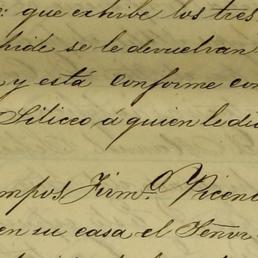 : que exhibe los tres
pide se le devuelvan
y está conforme con
Siliceo á quien le di
mpos Firmº Vicen
en su casa el Señor